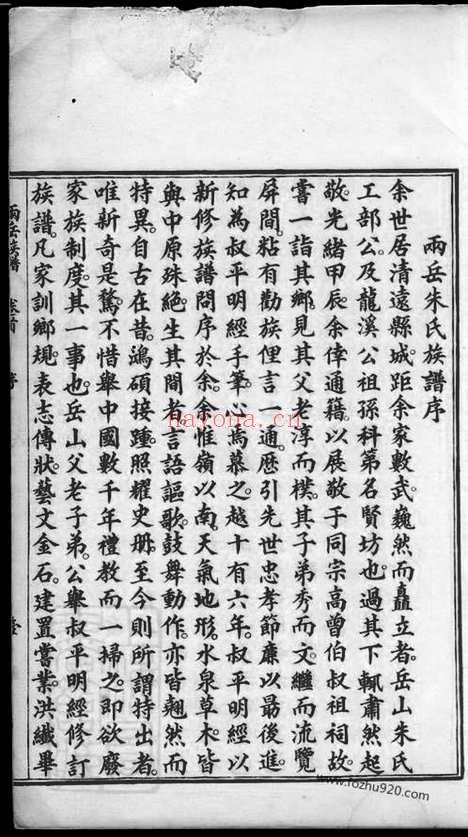 兩岳朱氏族譜序
余世居清遠縣城。距余家數武巍然而矗立者。岳山朱氏
工部公。及龍溪公祖孫科第名賢坊也。過其下輒肅然起
敬光緒甲辰。余倖通籍以展敬于同宗高曾伯叔祖祠。故
嘗一詣其鄉見其父老淳而樸。其子弟秀而文。繼而流覽
屏間。粘有勸族俚言一通。歷引先世忠孝節廉以最後進。
知為叔平明經手筆。心焉慕之。越十有六年。叔平明經以
新修族譜問序於余。余惟嶺以南。天氣地形。水泉草木。皆
與中原殊絕。生其間者。言語謳歌。鼓舞動作。亦皆翹然而
特異。自古在昔。鴻碩接踵。照耀史册。至今則所謂特出者。
唯新奇是騖。不惜舉中國數千年禮教而一掃之。即欲廢
家族制度。其一事也。岳山父老子弟。公舉叔平明經修訂
族譜。凡家訓鄉規。表志傳狀。藝文金石。建置嘗業。洪纖畢
兩岳族譜 卷首 序 壹
nayona.cn
www.fozhu920.com